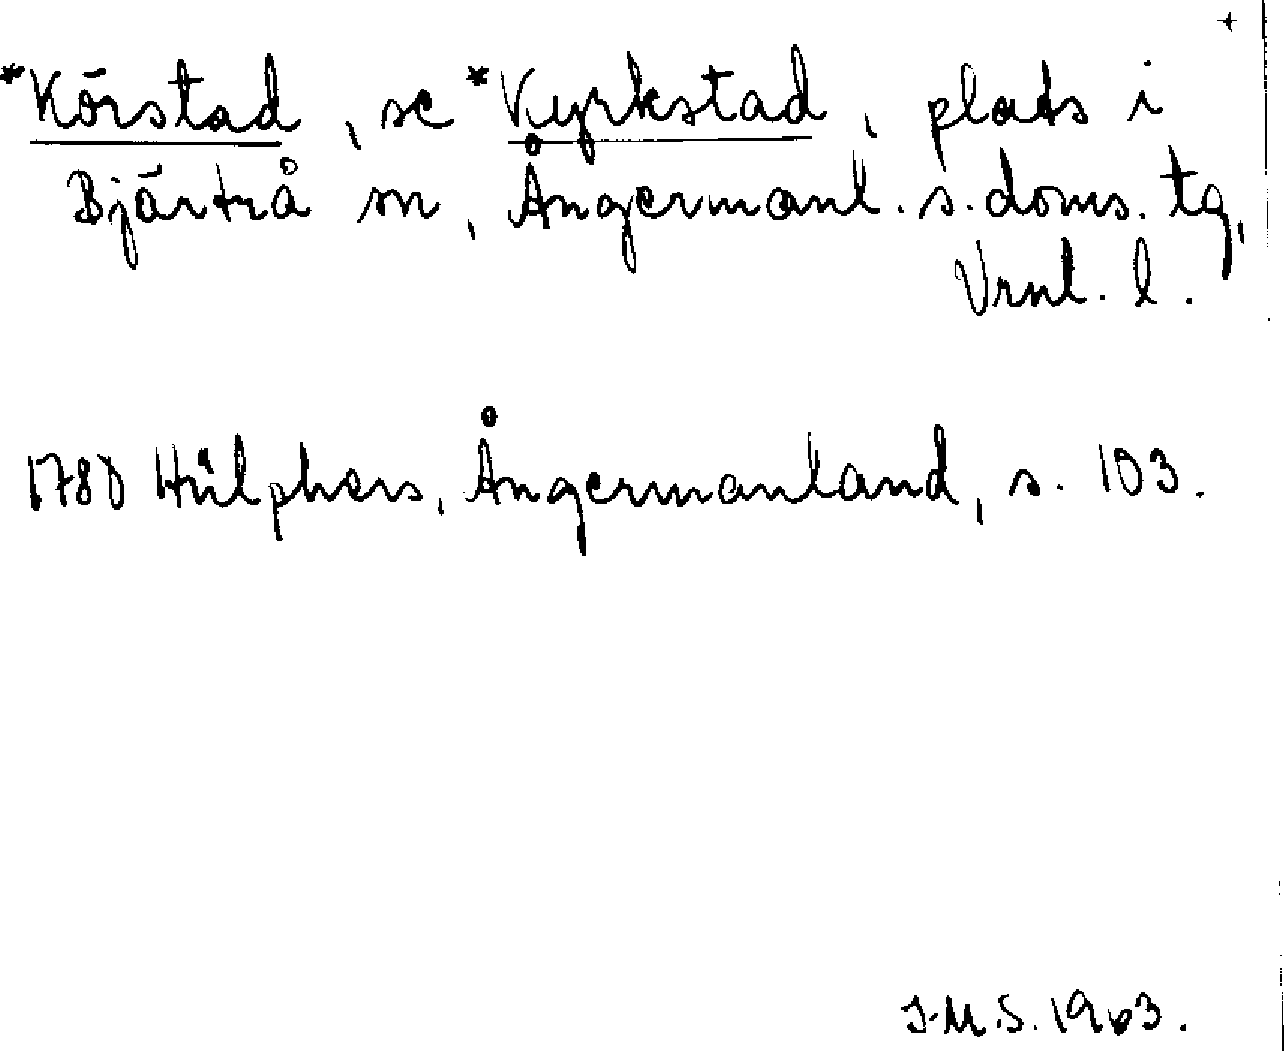 +
*Körstad, se *Kyrkstad, plats i
Bjärtrå sn, Ångermanl. s. doms. tg,
Vrnl. l.
1780 Hülphers, Ångermanland, s. 103.
J.M.S. 1963.